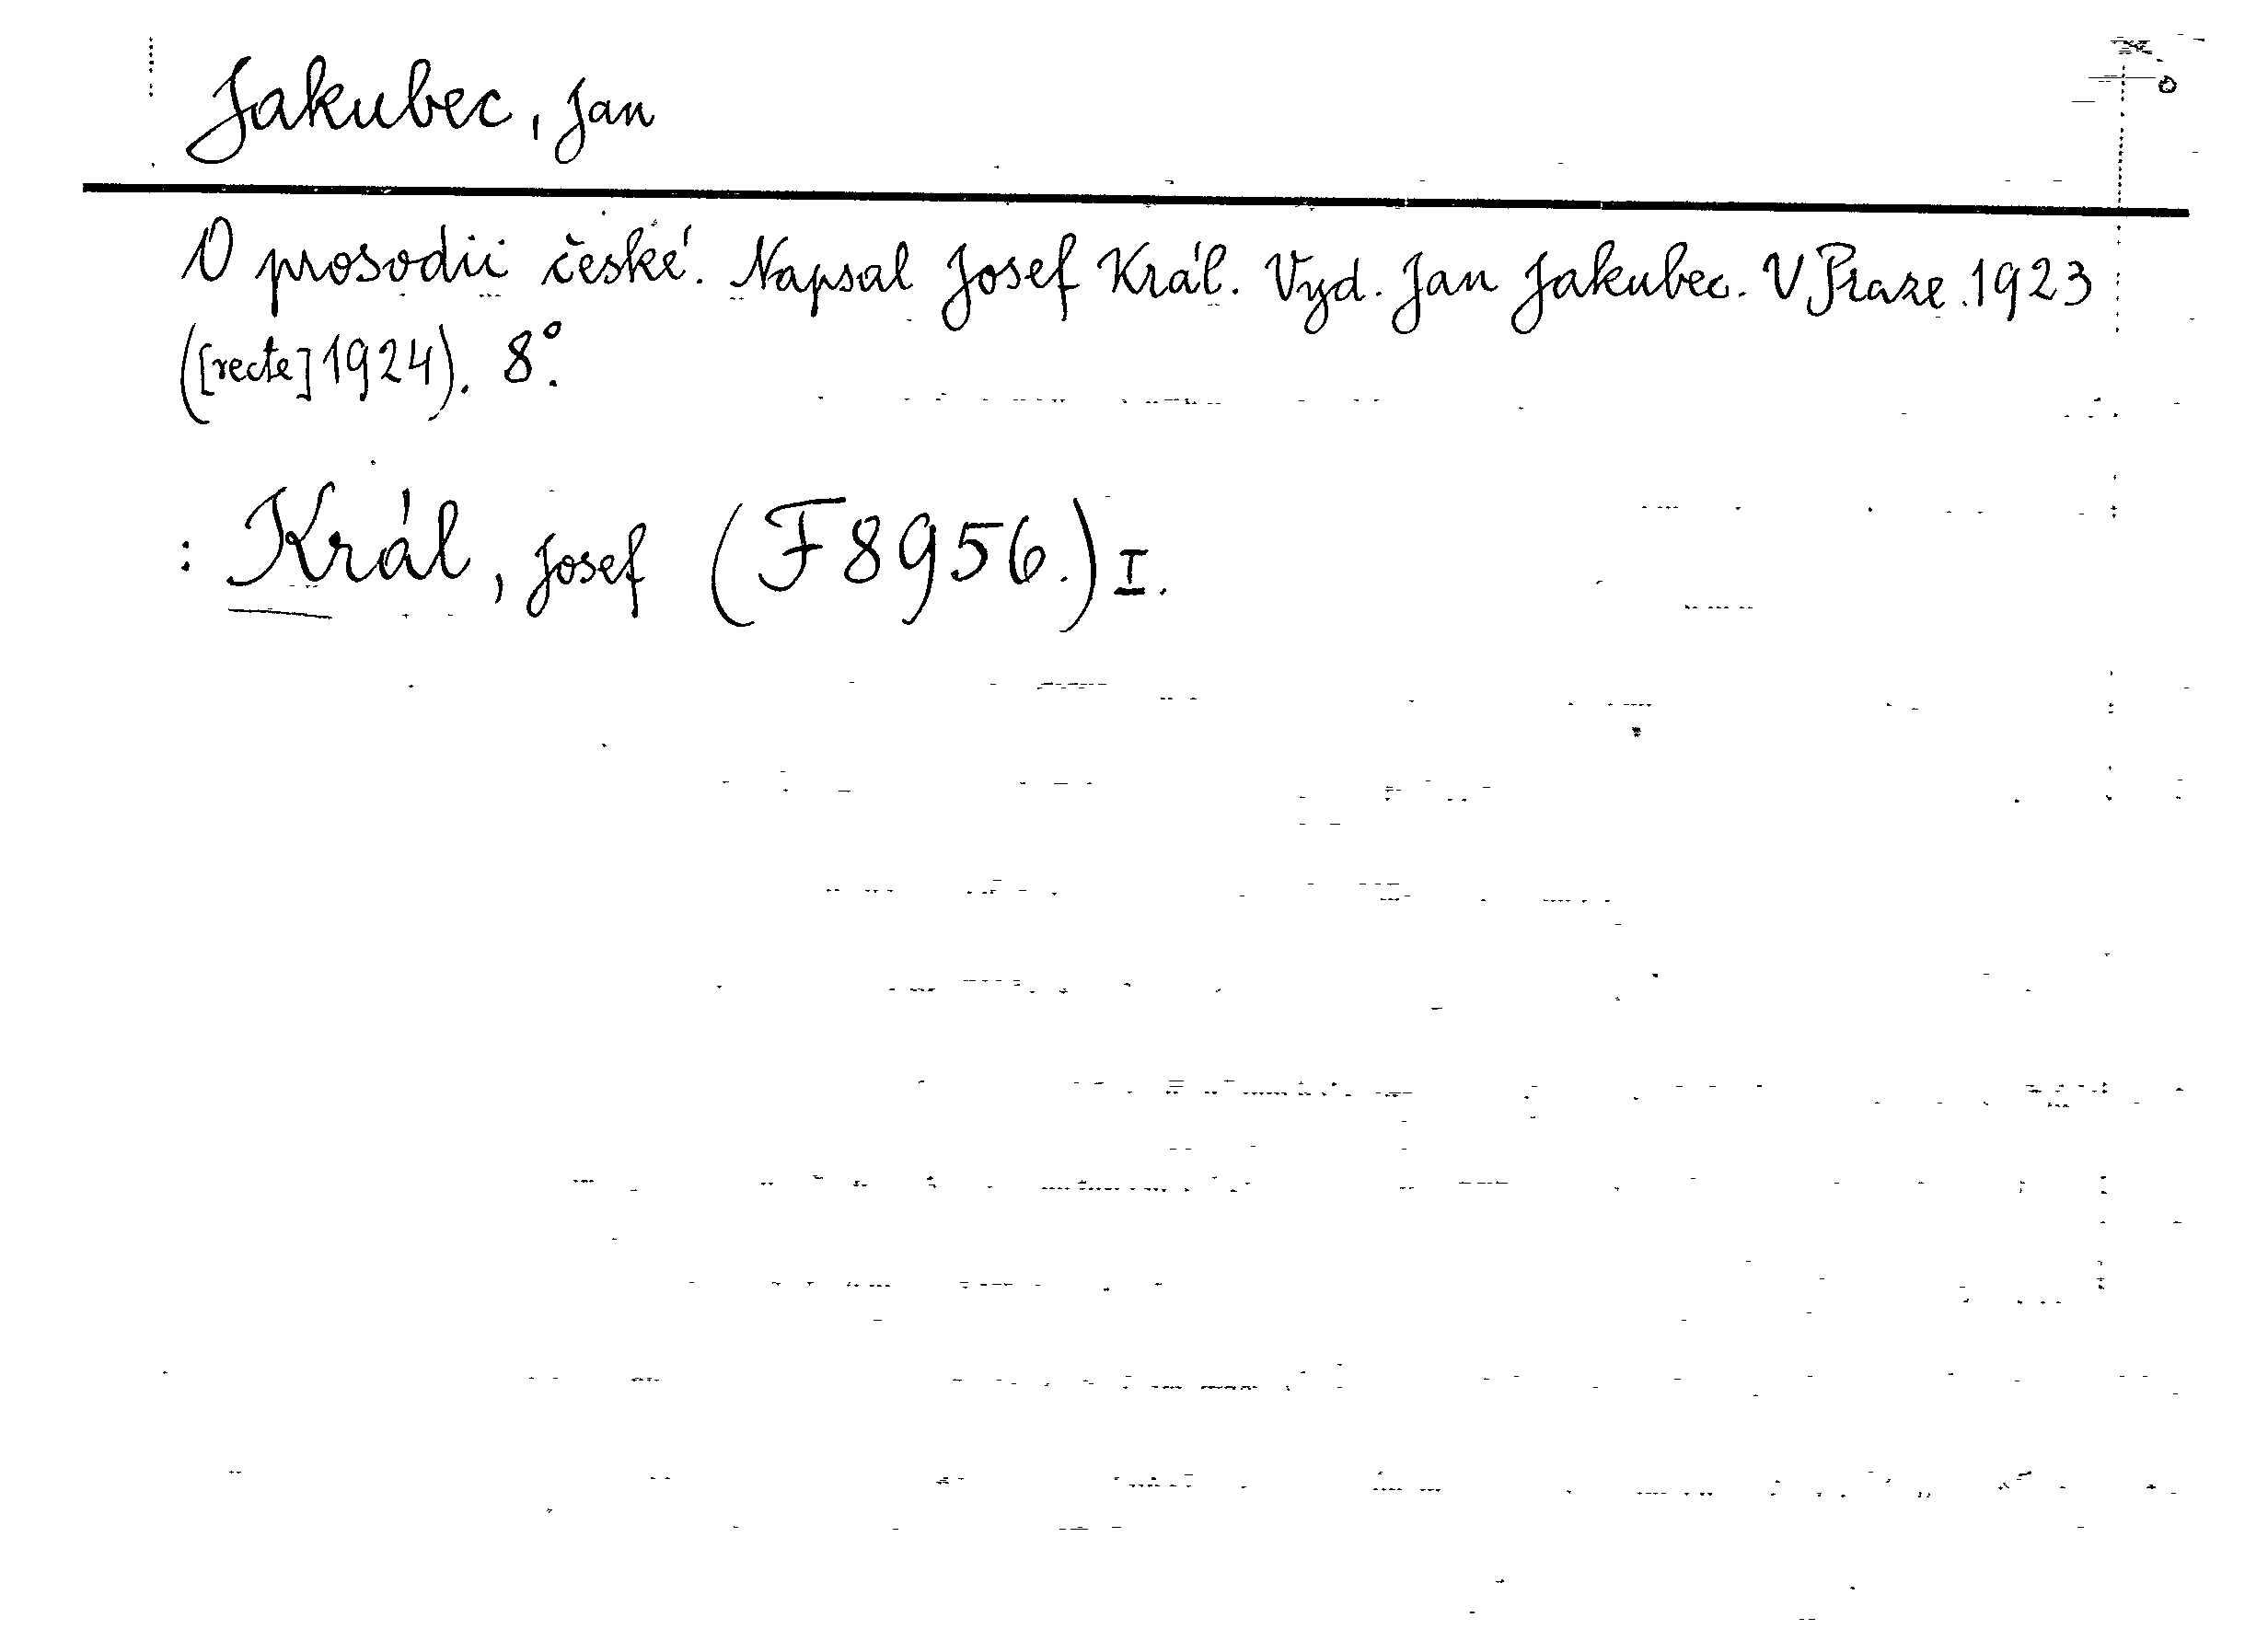 Jakubec, Jan
O prosodii české. Napsal Josef Král. Vyd. Jan Jakubec. V Praze. 1923
([recte] 1924). 8°.
: Král, Josef (F 8956.) I.